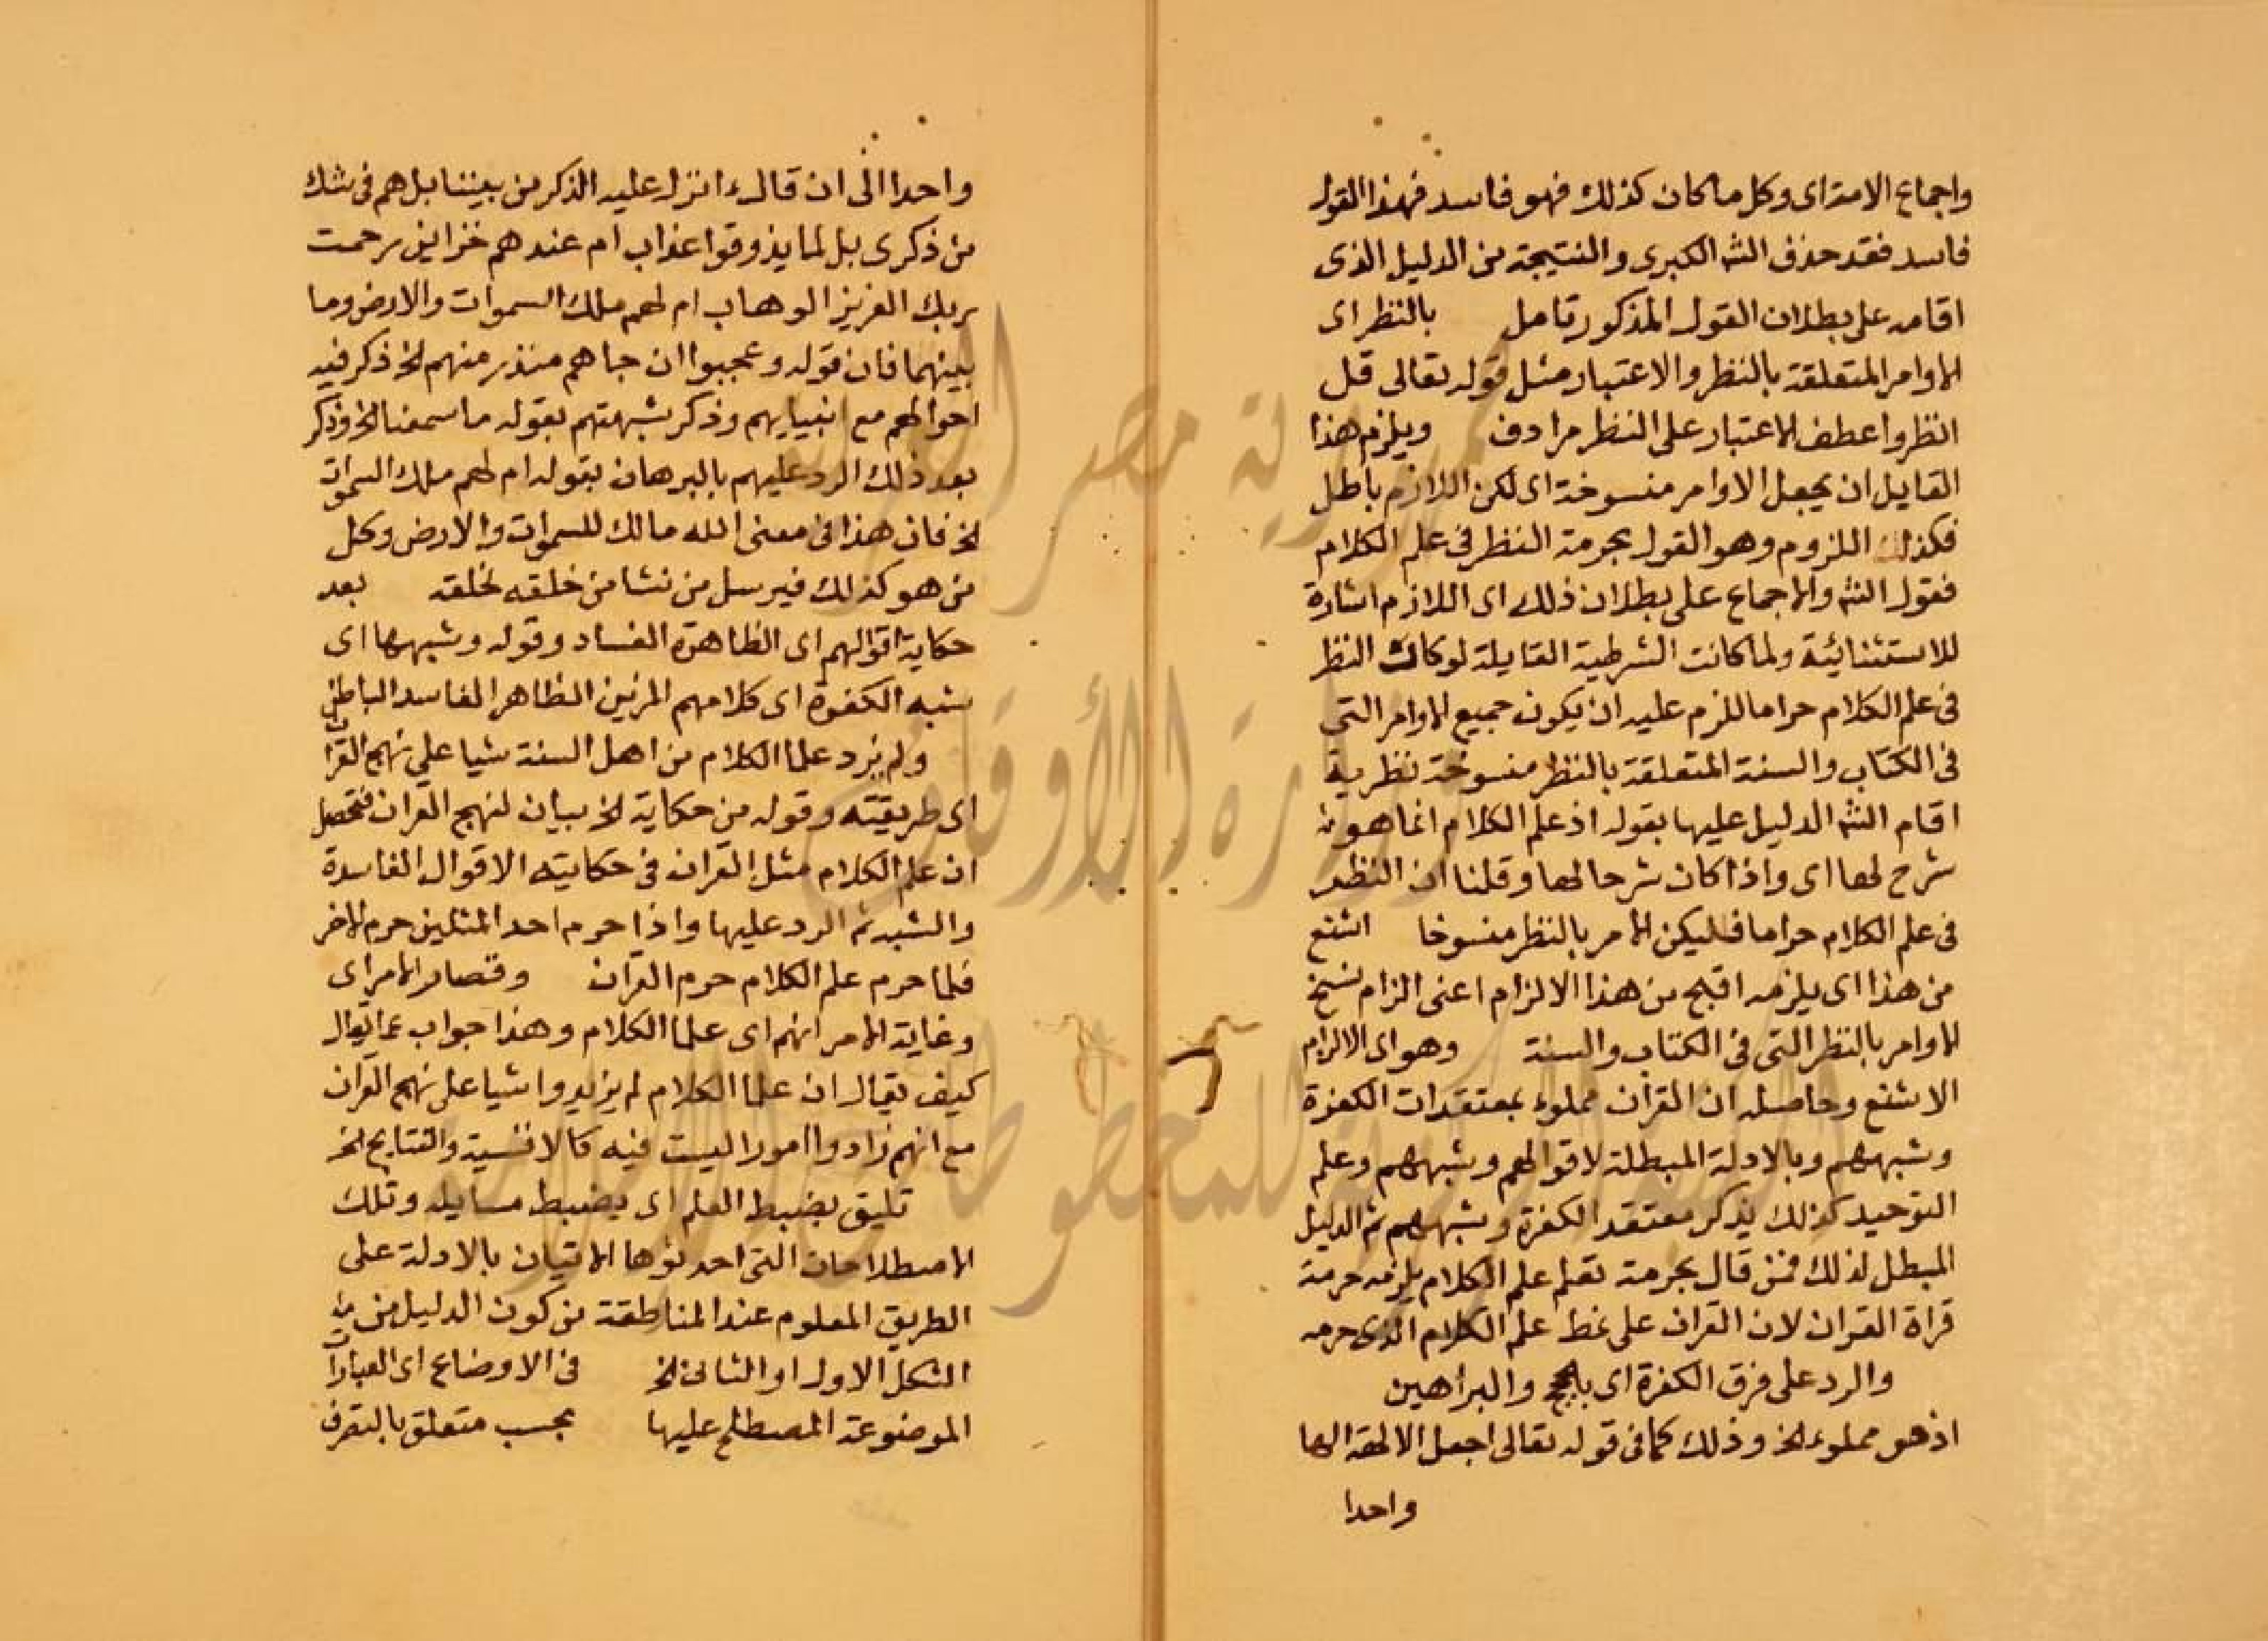 واجماع الامة اى وكل ما كان كذلك فهو فاسد فهذا القول
فاسد فقد حذف الشه الكبرى والنتيجة من الدليل الذى
اقامه على بطلان القول المذكور تامل بالنظر اى
الاوامر المتعلقة بالنظر والاعتبار مثل قوله تعالى قل
انظروا عطف الاعتبار على النظر مرادف ويلزم هذا
القايل ان يجعل الاوامر منسوخة اى لكن اللازم باطل
فكذلك اللزوم وهو القول بحرمة النظر فى علم الكلام
فقول الشه والاجماع على بطلان ذلك اى اللازم اشارة
للاستثنائية ولما كانت الشرطية القايلة لو كان النظر
فى علم الكلام حراما للزم عليه ان يكون جميع الاوامر التى
فى الكتاب والسنة المتعلقة بالنظر منسوخة نظرية
اقام الشه الدليل عليها بقوله اذ علم الكلام انما هو
شرح لها اى واذا كان شرحا لها وقلنا ان النظر
فى علم الكلام حراما فليكن الامر بالنظر منسوخا اشنع
من هذا اى يلزمه اقبح من هذا الالزام اعنى الزام نسخ
الاوامر بالنظر التى فى الكتاب والسنة وهو اى الالزام
الاشنع وحاصله ان القران مملوء بمعتقدات الكفرة
وشبههم وبالادلة المبطلة لاقوالهم وشبههم وعلم
التوحيد كذلك يذكر معتقد الكفرة وشبههم ثم الدليل
المبطل لذلك فمن قال بحرمة تعلم علم الكلام يلزمه حرمة
قراة القران لان القران على نمط علم الكلام الذى حرمه
والرد على فرق الكفرة اى بالحجج والبراهين
اذ هو مملوء الخ وذلك كما فى قوله تعالى اجعل الالهة الها
واحدا
واحدا الى ان قال ءانزل عليه الذكر من بيننا بل هم فى شك
من ذكرى بل لما يذوقوا عذاب ام عندهم خزاين رحمت
ربك العزيز الوهاب ام لهم ملك السموات والارض وما
بينهما فان قوله وعجبوا ان جاهم منذر منهم الخ ذكر فيه
احوالهم مع انبيايهم وذكر شبهتهم بقوله ما سمعنا الخ وذكر
بعد ذلك الرد عليهم بالبرهان بقوله ام لهم ملك السموات
الخ فان هذا فى معنى الله مالك للسموات والارض وكل
من هو كذلك فيرسل من نشا من خلقه لخلقه بعد
حكاية اقوالهم اى الظاهرة الفساد وقوله وشبهها اى
شبه الكفرة اى كلامهم المزين الظاهر الفاسد الباطن
ولم يزد علما الكلام من اهل السنة شيا على نهج القران
اى طريقته وقوله من حكاية الخ بيان لنهج القران فتحصل
ان علم الكلام مثل القران فى حكايته الاقوال الفاسدة
والشبه ثم الرد عليها واذا حرم احد المثلين حرم الاخر
فلما حرم علم الكلام حرم القران وقصار الامر اى
وغاية الامر انهم اى علما الكلام وهذا جواب عما يقال
كيف يقال ان علما الكلام لم يزيدوا شيا على نهج القران
مع انهم زادوا امورا ليست فيه كالاقيسة والنتايج الخ
تليق بضبط العلم اى بضبط مسايله وتلك
الاصطلاحات التى احدثوها الاتيان بالادلة على
الطريق المعلوم عند المناطقة من كون الدليل من
الشكل الاول او الثانى الخ فى الاوضاع اى العبارات
الموضوعة المصطلح عليها بحسب متعلق بالتصرف